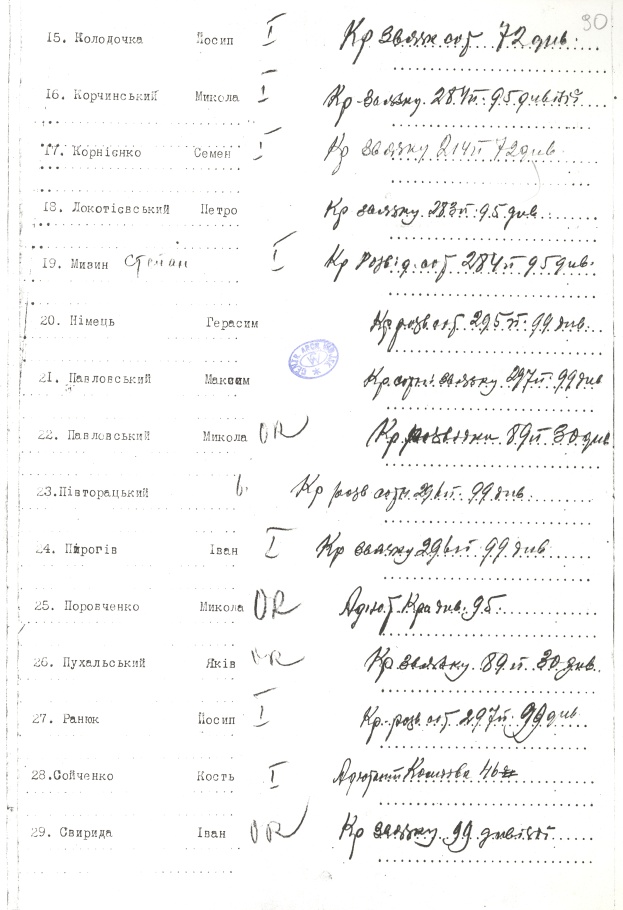 90
15. Колодочка Йосип I Кр звязк сот 72 див.
16. Корчинський Микола I Кр. звязку 284 п. 95 дивізії
17. Корнієнко Семен I Кр звязку 214 п 72 див
18. Локотієвський Петро Кр звязку 283 п. 95 див.
19. Мизин Степан I Кр Розвід. сот 284 п 95 див.
20. Німець Герасим Кр розв сот 295 п. 99 див.
21. Павловський Максим Кр. сотні звязку 297 п. 99 див
22. Павловський Микола OR Кр розвідки 89 п 30 див
23.Півторацький Кр розв сотн 296 п. 99 див.
24. Пирогів Іван I Кр звязку 296 п 99 див
25. Поровченко Микола OR Адют Кра див. 95.
26. Пухальський Яків OR Кр звязку. 89 п 30 див.
27. Ранюк Йосип I Кр. розв сот 297 п. 99 див
28.Сойченко Кость I 46
29. Свирида Іван OR Кр звязку 99 дивізії